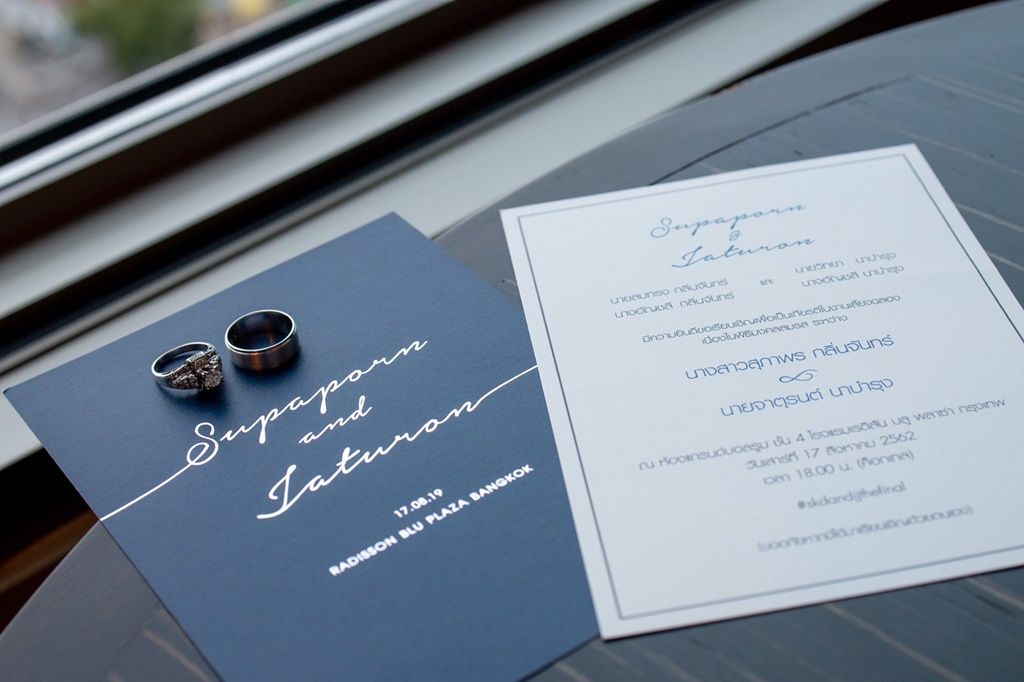 Supaporn
and
Jaturon
17.08.19
RADISSON BLU PLAZA BANGKOK
Supaporn
&
Jaturon
นายสมทรง กลิ่นจันทร์
นางอัญชลี กลิ่นจันทร์
และ
นายวิทยา นาบำรุง
นางอัญชลี นาบำรุง
มีความยินดีขอเรียนเชิญเพื่อเป็นเกียรติในงานเลี้ยงฉลอง
เนื่องในพิธีมงคลสมรส ระหว่าง
นางสาวสุภาพร กลิ่นจันทร์
นายจาตุรนต์ นาบำรุง
ณ ห้องแกรนด์บอลรูม ชั้น 4 โรงแรมเรดิสัน บลู พลาซ่า กรุงเทพ
วันเสาร์ที่ 17 สิงหาคม 2562
เวลา 18.00 น. (ค็อกเทล)
#skdandjjthefinal
(ขออภัยหากมิได้มาเรียนเชิญด้วยตนเอง)